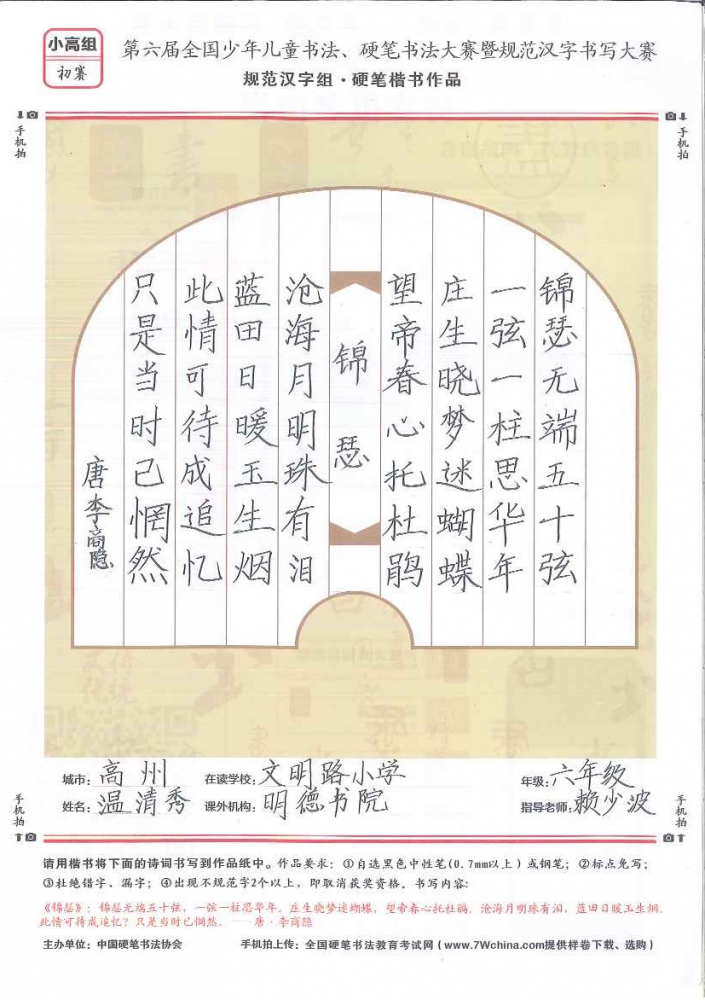 小高组
初赛
第六届全国少年儿童书法、硬笔书法大赛暨规范汉字书写大赛
规范汉字组·硬笔楷书作品
手机拍
手机拍
锦瑟无端五十弦
一弦一柱思华年
庄生晓梦迷蝴蝶
望帝春心托杜鹃
锦瑟
沧海月明珠有泪
蓝田日暖玉生烟
此情可待成追忆
只是当时已惘然
唐李商隐
城市：高州 在读学校：文明路小学 年级：六年级
姓名：温清秀 课外机构：明德书院 指导老师：赖少波
手机拍
手机拍
请用楷书将下面的诗词书写到作品纸中。作品要求：①自选黑色中性笔(0.7mm以上)或钢笔；②标点免写；
③杜绝错字、漏字；④出现不规范字2个以上，即取消获奖资格。书写内容：
《锦瑟》：锦瑟无端五十弦，一弦一柱思华年。庄生晓梦迷蝴蝶，望帝春心托杜鹃。沧海月明珠有泪，蓝田日暖玉生烟。
此情可待成追忆？只是当时已惘然。——唐·李商隐
主办单位：中国硬笔书法协会 手机拍上传：全国硬笔书法教育考试网（www.7Wchina.com提供样卷下载、选购）